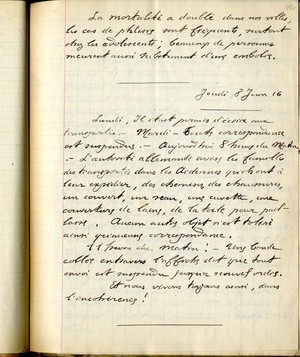 La mortalité a doublé dans nos villes,
les cas de phtisies sont fréquents, surtout
chez les adolescents; beaucoup de personnes
meurent aussi subitement d'une embolie.
Jeudi 8 Juin 16
Lundi, Il était permis d'écrire aux
transportés. — Mardi — Toute correspondance
est suspendue. — Aujourd'hui 8 heures du Matin
— L'autorité allemande avise les familles
des transportés dans les Ardennes qu'ils ont à
leur expédier, des chemises, des chaussures,
un couvert, un seau, une cuvette, une
couverture de laine, de la toile pour
. Aucun autre objet n'est toléré
ainsi qu'aucune correspondance.
11 heures du Matin! — Une bande
collée en travers l'affiche dit que tout
envoi est suspendu jusque nouvel ordre.
Et nous vivons toujours ainsi, dans
l'incohérence!